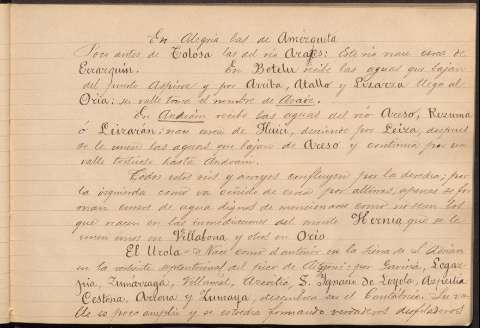 En Alegria las de Amezqueta
Poco antes de Tolosa las del rio Arages: Este rio nace cerca de
Errazquin. En Betelu recibe las aguas que bajan
del puerto Azpiroz y por Arriba, Atallo y Lizarza llega al
Oria: su valle toma el nombre de Araiz.
En Andoain recibe las aguas del rio Areso, Rezuma
ó Leizarán: nace cerca de Huici, desciende por Leiza, despues
se le unen las aguas que bajan de Areso y continúa por un
valle tortuoso hasta Andoain.
Todos estos rios y arroyos confluyen por la derecha; por
la izquierda como va ceñido de cerca por alturas, apenas se for
man cursos de agua dignos de mencionarse como no sean los
que nacen en las inmediaciones del monte Hernia que se le
unen unos en Villabona y otros en Orio.
El Urola - Nace como el anterior en la sierra de S. Adrian
en la vertiente septentrional del pico de por Gaviria, Legaz-
pia, Zumarraga, Villareal, Azcoitia, S. Ignacio de Loyola, Azpeitia
Cestona, Arrona y Zumaya, desemboca en el Cantábrico. Su va-
lle es poco amplio y se estrecha formando verdaderos desfiladeros